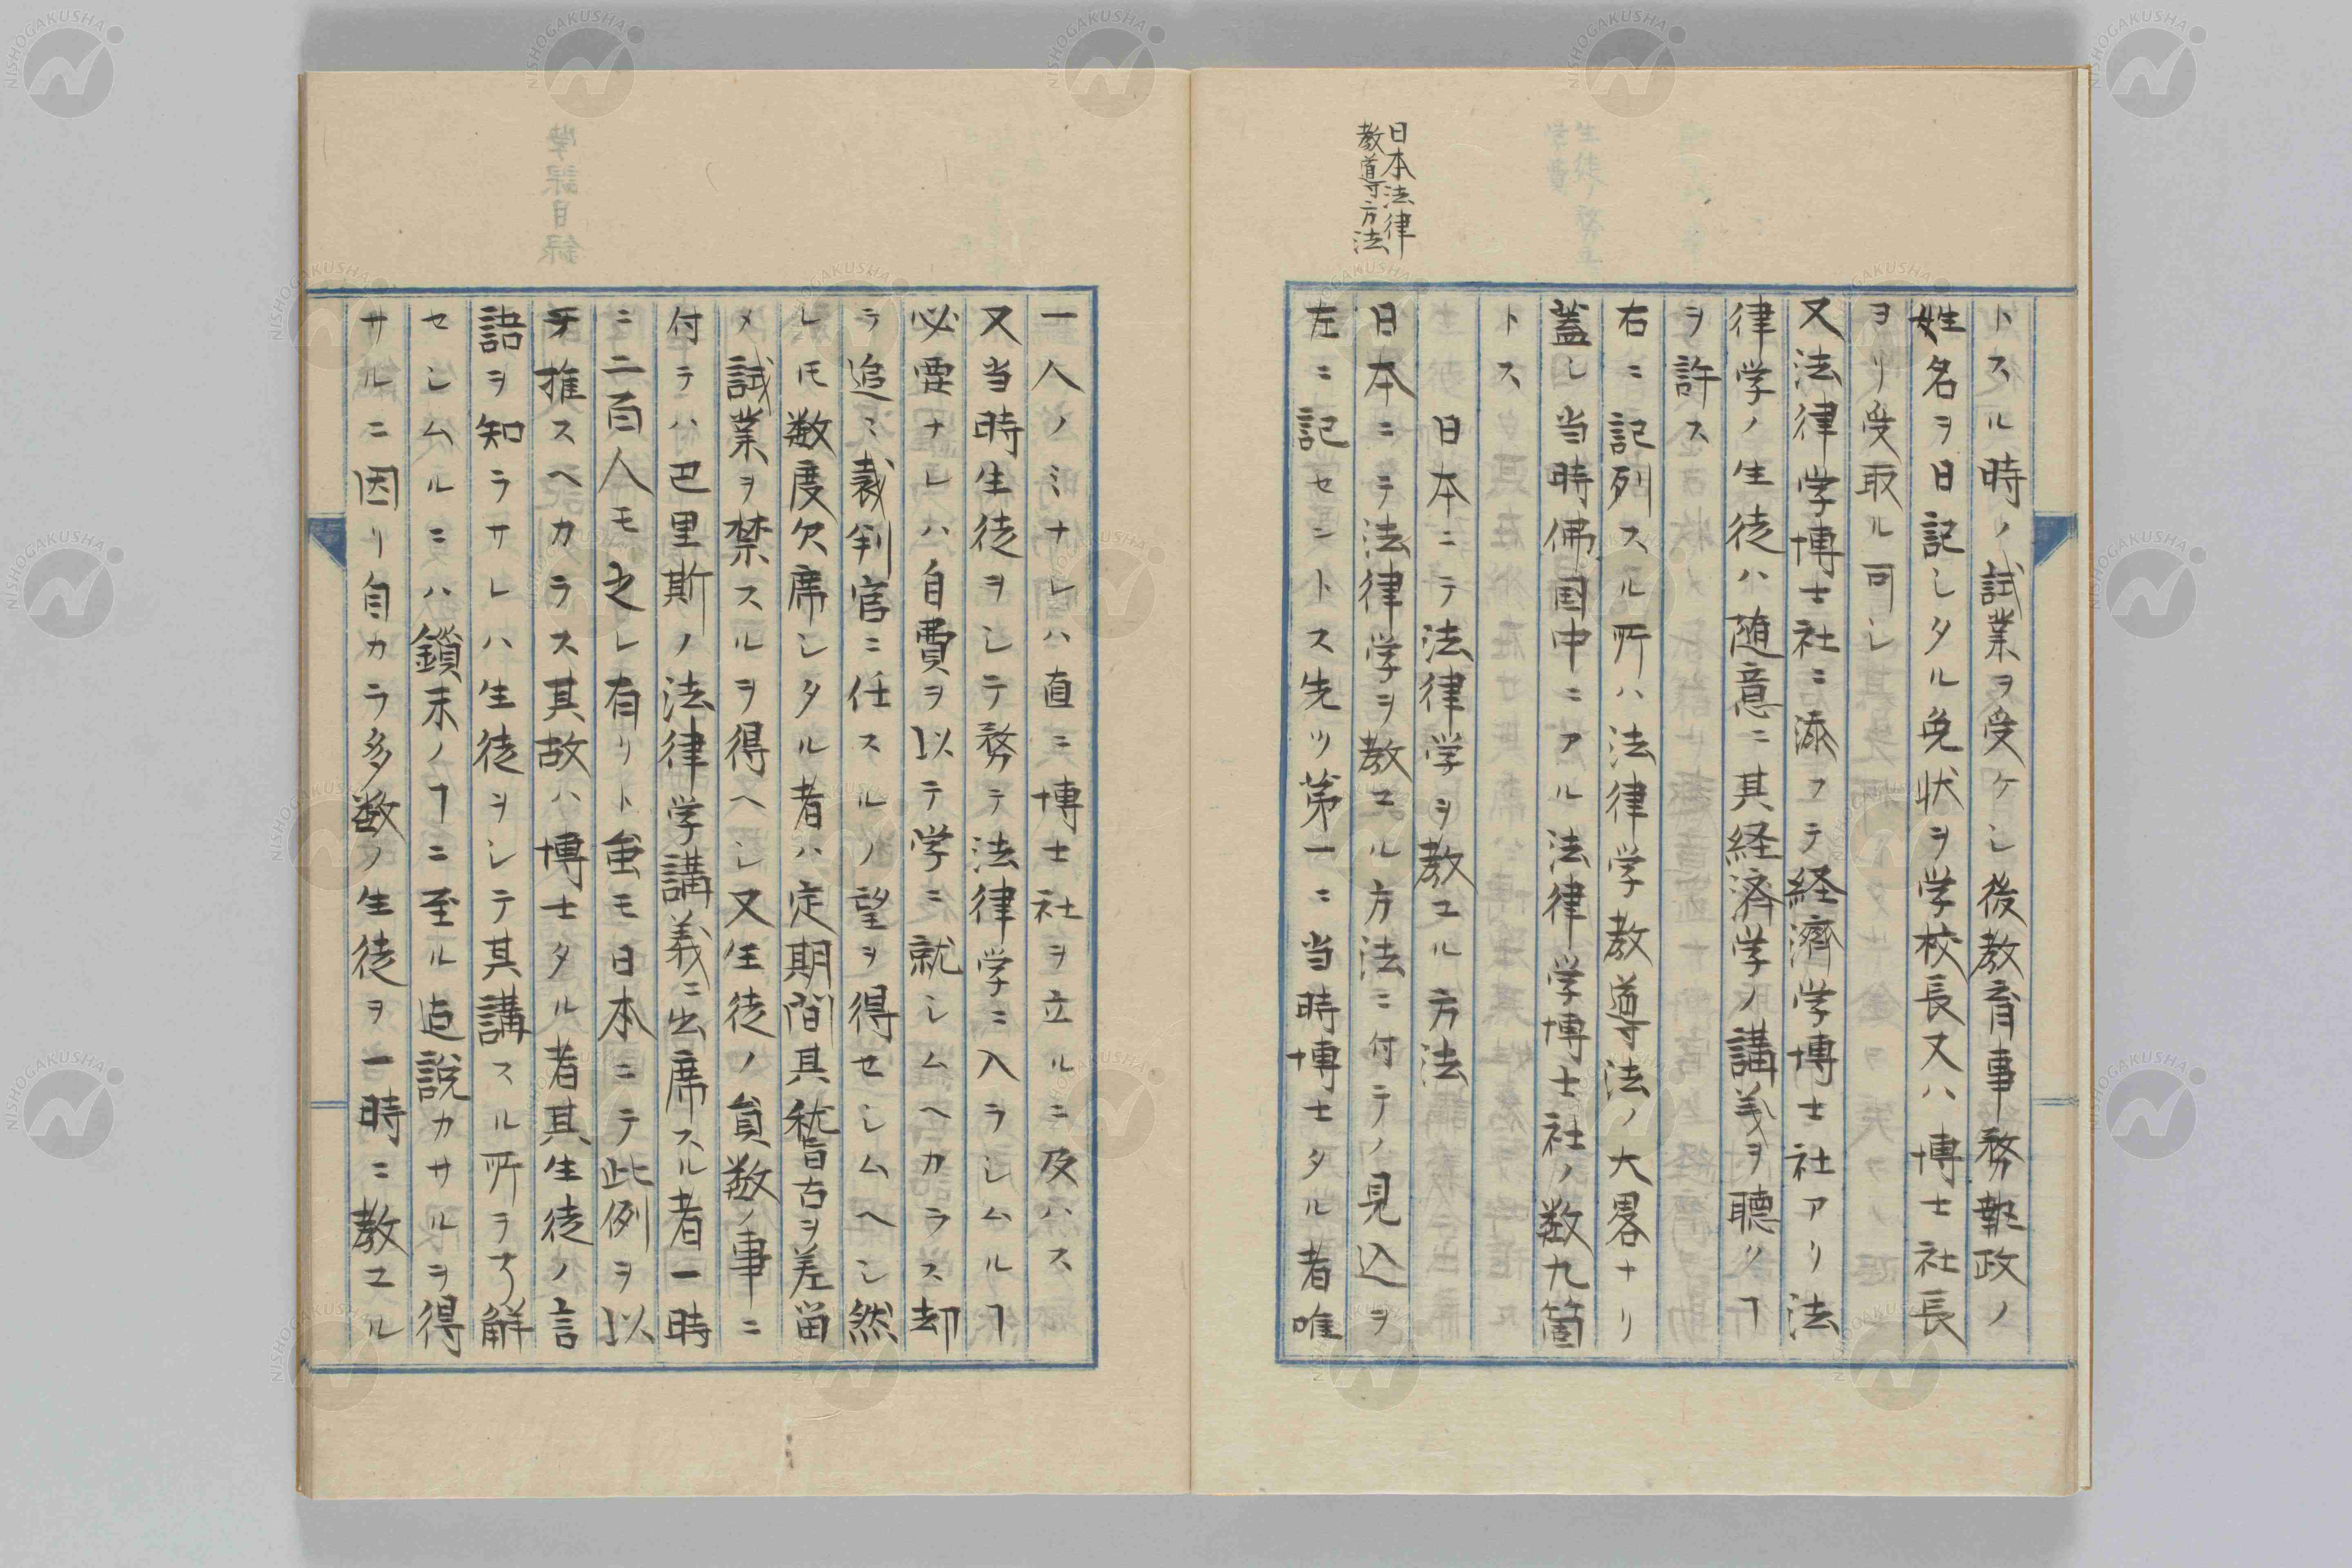 日本法律
教導方法
トスル時ノ試業ヲ受ケシ後教育事務執政ノ
姓名ヲ日記シタル免状ヲ学校長又ハ博士社長
ヨリ受取ル可シ
又法律学博士社ニ添フテ経濟学博士社アリ法
律学ノ生徒ハ随意ニ其経済学ノ講義ヲ聴クヿ
ヲ許ス
右ニ記列スル所ハ法律学教導法ノ大畧ナリ
蓋シ当時佛国中ニアル法律学博士社ノ数九箇
トス
日本ニテ法律学ヲ教ユル方法
日本ニテ法律学ヲ教ユル方法ニ付テノ見込ヲ
左ニ記セントス先ツ第一ニ当時博士タル者唯
一人ノミナレハ直ニ博士社ヲ立ルニ及ハス
又当時生徒ヲシテ務テ法律学ニ入ラシムルヿ
必要ナレハ自費ヲ以テ学ニ就シムヘカラス却
テ追々裁判官ニ任スルノ望ヲ得セシムヘシ然
レ𪜈数度欠席シタル者ハ定期間其稽古ヲ差留
メ試業ヲ禁スルヲ得ヘシ又生徒ノ員数ノ事ニ
付テハ巴里斯ノ法律学講義ニ出席スル者一時
ニ二百人モ之レ有リト虽モ日本ニテ此例ヲ以
テ推スヘカラス其故ハ博士タル者其生徒ノ言
語ヲ知ラサレハ生徒ヲシテ其講スル所ヲ了解
セシムルニハ鎖末ノヿニ至ル迠説カサルヲ得
サルニ因リ自カラ多数ノ生徒ヲ一時ニ教ユル
NISHOGAKUSHA